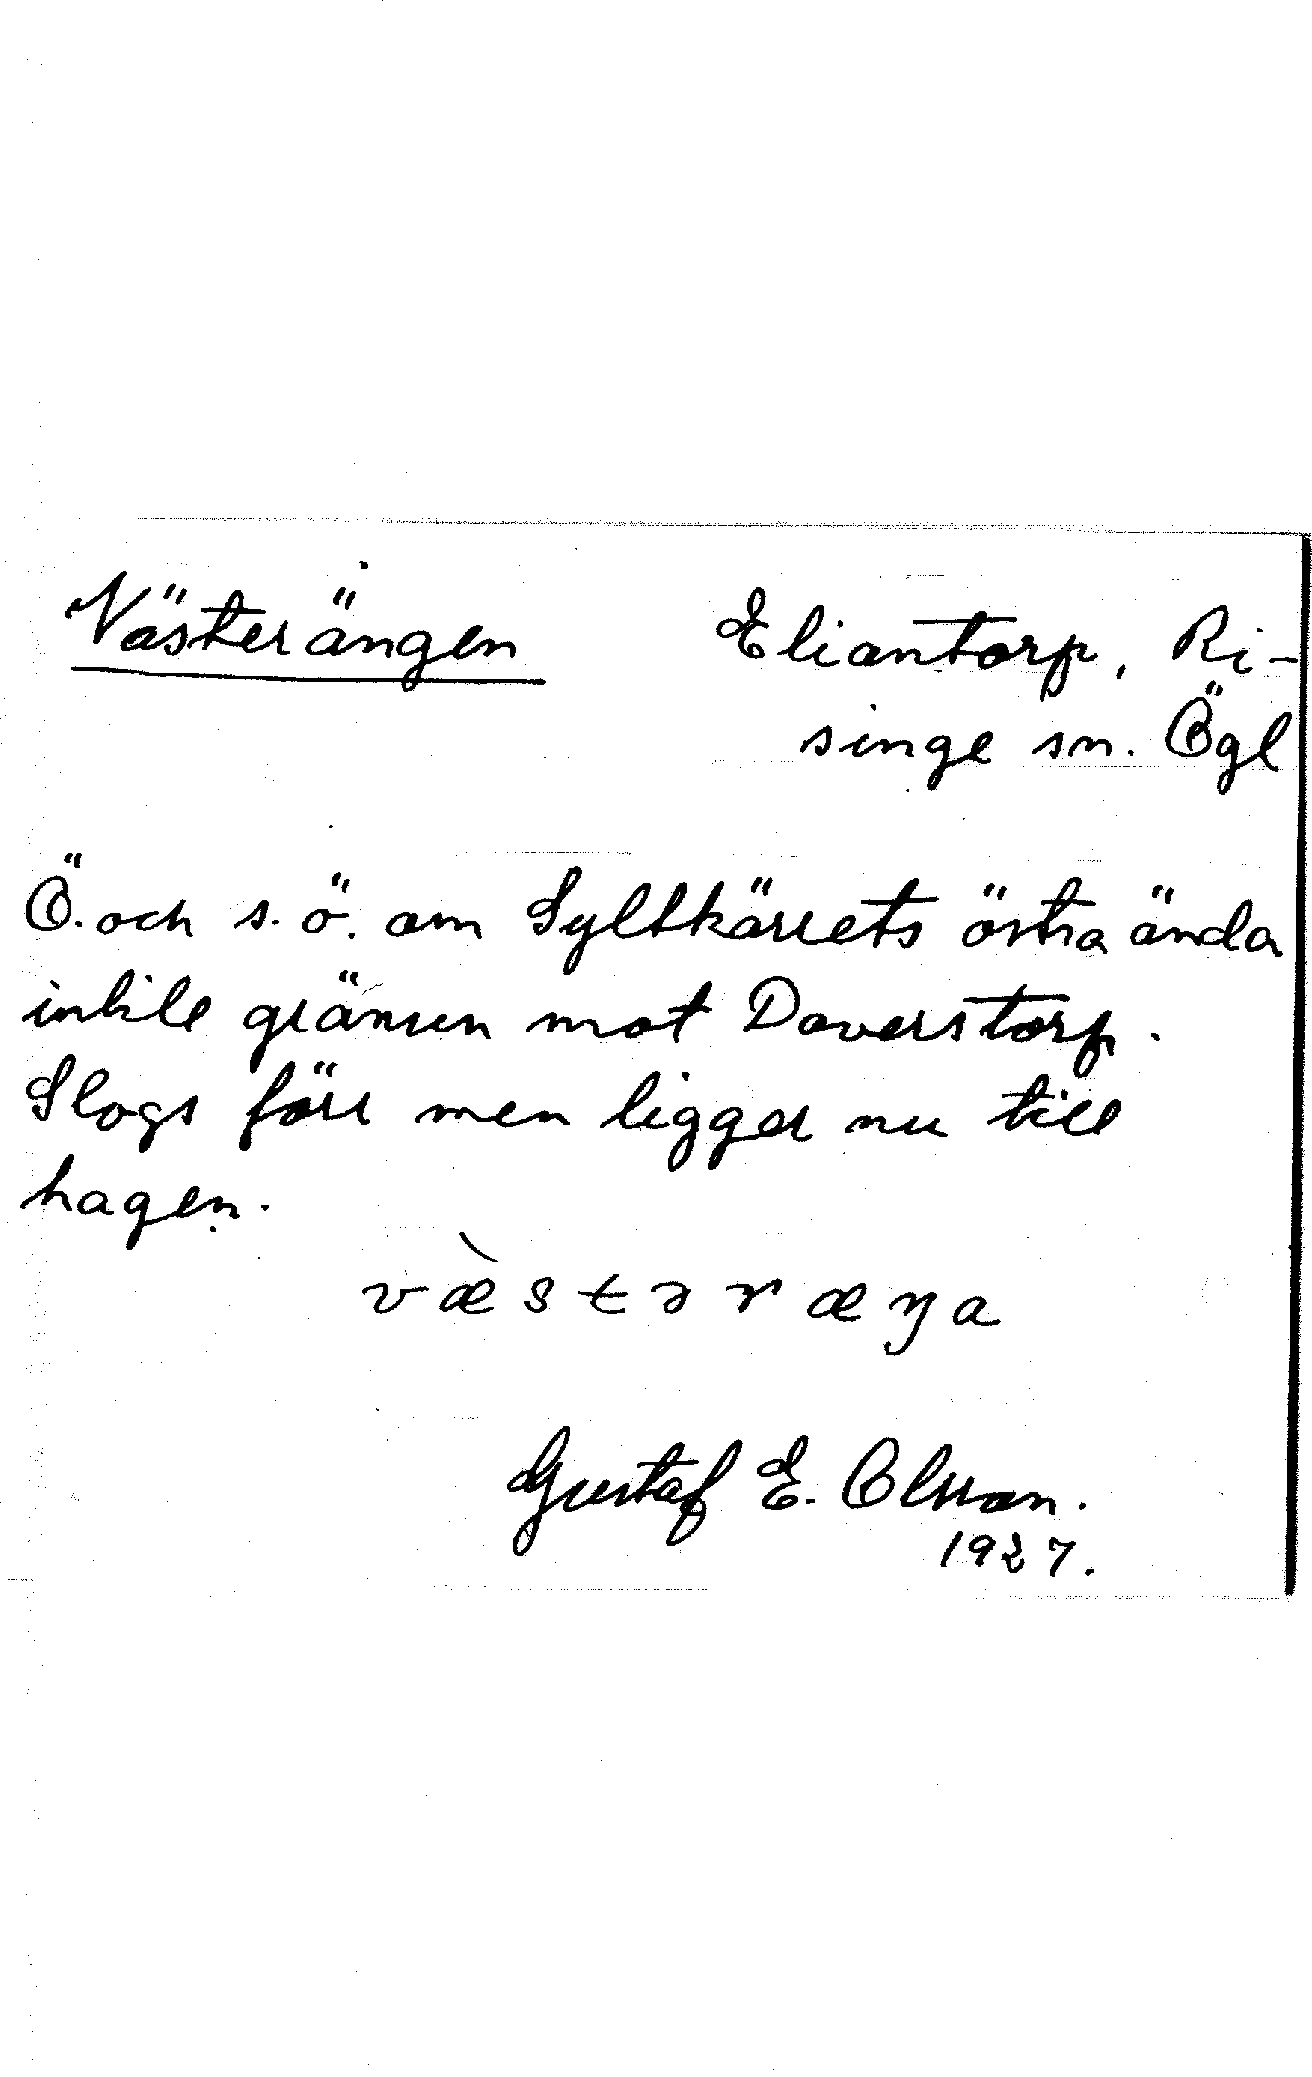 Västerängen
Eliantorp, Ri-
singe sn. Ögl
Ö. och s. ö. om Syltkärrets östra ända
intill gränsen mot Daverstorp.
Slogs förr men ligger nu till
hagen.
væ̀stəræŋa
Gustaf E. Olsson.
1927.